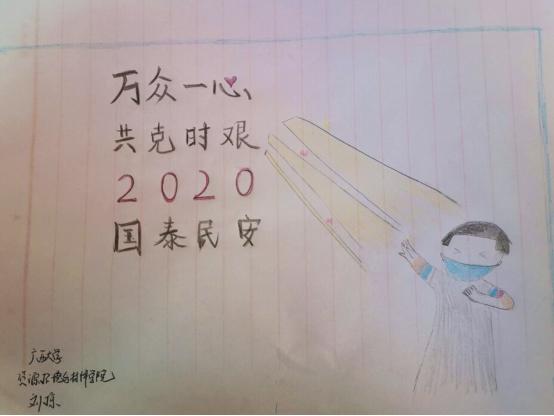 万众一心、
共克时艰
2020
国泰民安
广西大学
资源环境与材料学院